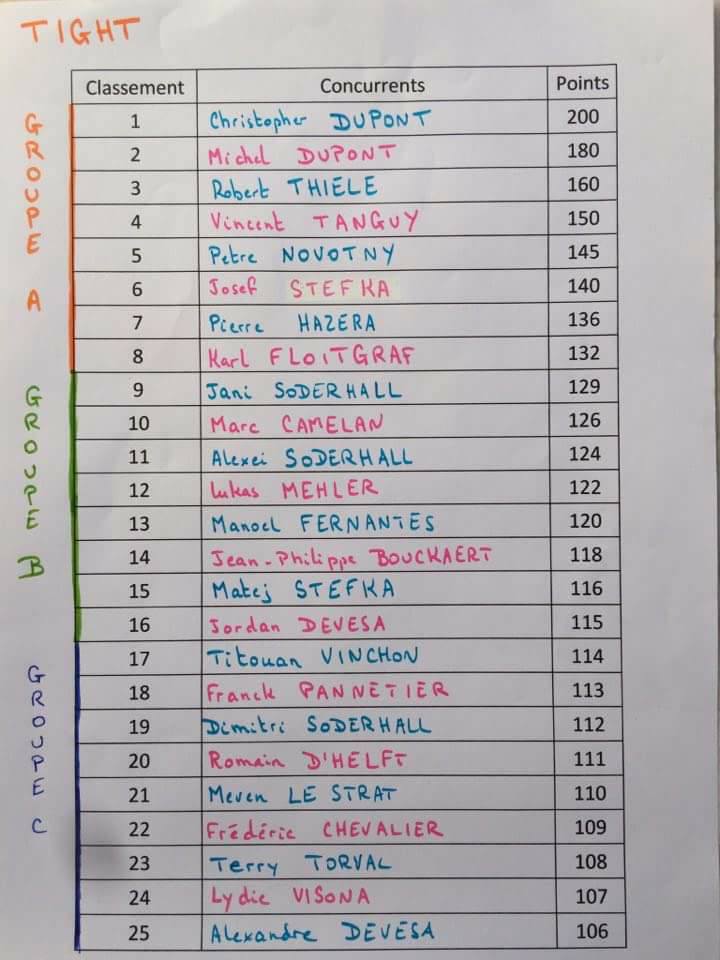 TIGHT
Classement Concurrents Points
GROUPE A
1 Christopher DUPONT 200
2 Michel DUPONT 180
3 Robert THIELE 160
4 Vincent TANGUY 150
5 Petre NOVOTNY 145
6 Josef STEFKA 140
7 Pierre HAZERA 136
8 Karl FLOITGRAF 132
GROUPE B
9 Jani SODERHALL 129
10 Marc CAMELAN 126
11 Alexei SODERHALL 124
12 Lukas MEHLER 122
13 Manoel FERNANTES 120
14 Jean-Philippe BOUCKAERT 118
15 Matej STEFKA 116
16 Jordan DEVESA 115
GROUPE C
17 Titouan VINCHON 114
18 Franck PANNETIER 113
19 Dimitri SODERHALL 112
20 Romain D'HELFT 111
21 Meven LE STRAT 110
22 Frédéric CHEVALIER 109
23 Terry TORVAL 108
24 Lydie VISONA 107
25 Alexandre DEVESA 106